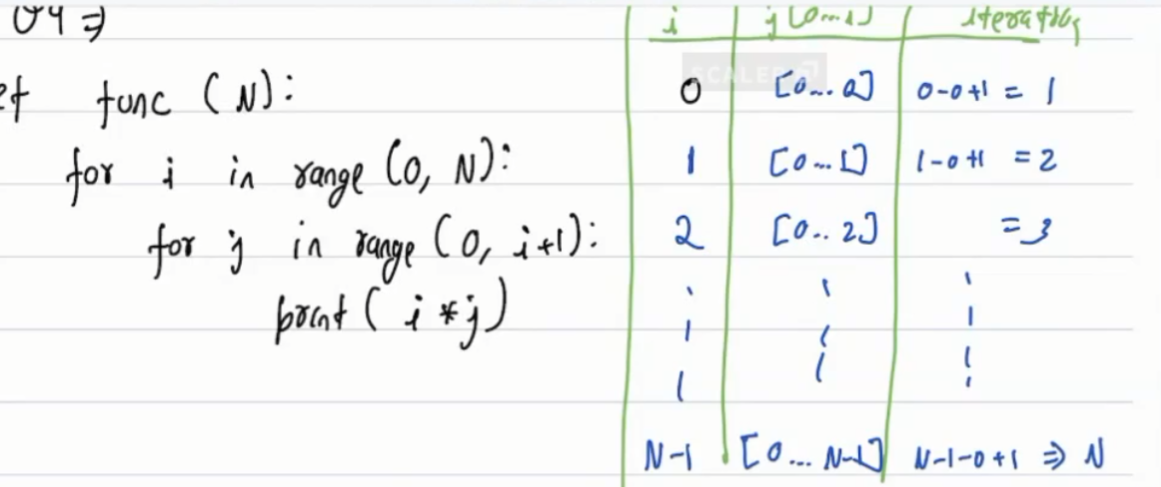 Q4 ⇒
ef func (N):
for i in range (0, N):
for j in range (0, i+1):
print( i *j)
i j [0...i] iteration
SCALER
0 [0... 0] 0-0+1 = 1
1 [0...1] 1-0+1 = 2
2 [0.. 2] =3
N-1 [0... N-1] N-1-0+1 ⇒ N